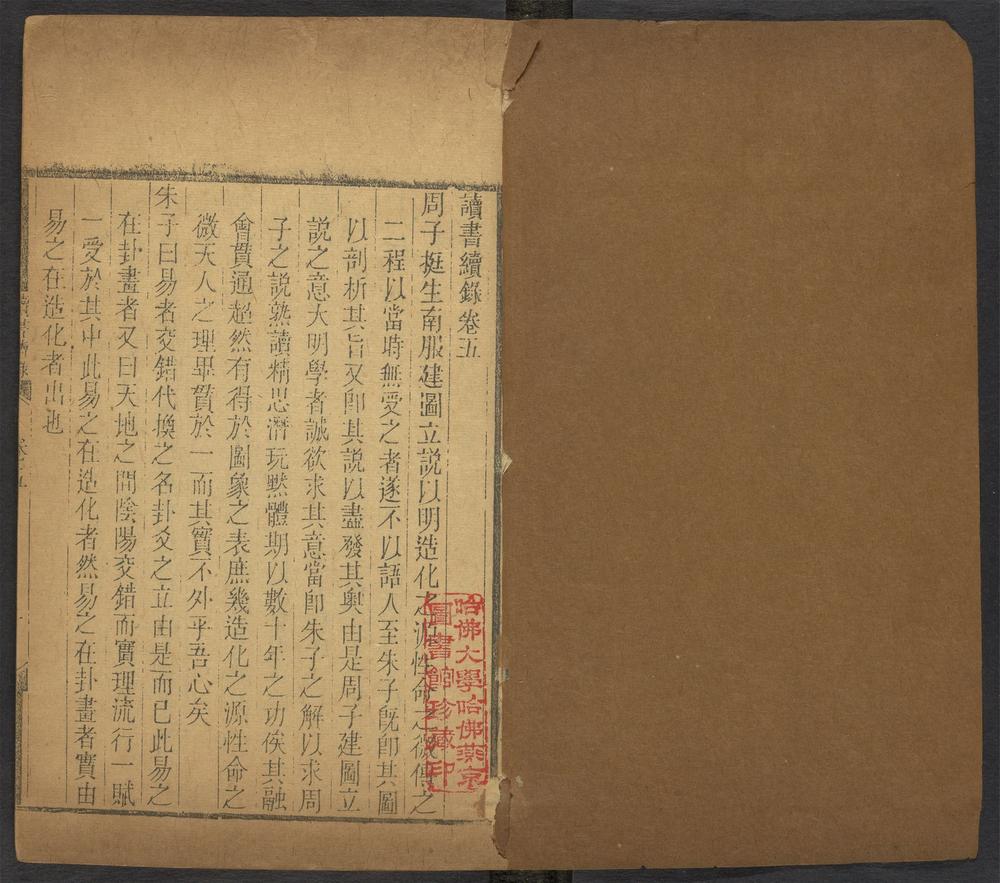 讀書續錄卷五
周子挺生南服建圖立說以明造化之源性命之微傳之
二程以當時無受之者遂不以語人至朱子既即其圖
以剖析其旨又即其說以盡發其奧由是周子建圖立
說之意大明學者誠欲求其意當即朱子之解以求周
子之說熟讀精思潛玩默體期以數十年之功俟其融
會貫通超然有得於圖象之表庶幾造化之源性命之
微天人之理畢貫於一而其實不外乎吾心矣
朱子曰易者交錯代換之名卦爻之立由是而已此易之
在卦畫者又曰天地之間陰陽交錯而實理流行一賦
一受於其中此易之在造化者然易之在卦畫者實由
易之在造化者出也
哈佛大學哈佛燕京
圖書館珍藏印